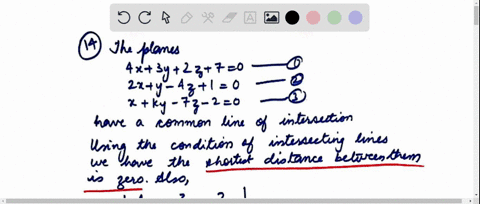 14 The planes
4x+3y+2z+7=0 — 1
2x+y-4z+1=0 — 2
x+ky-7z-2=0 — 3
have a common line of intersection
Using the condition of intersecting lines
we have the shortest distance between them
is zero. Also,